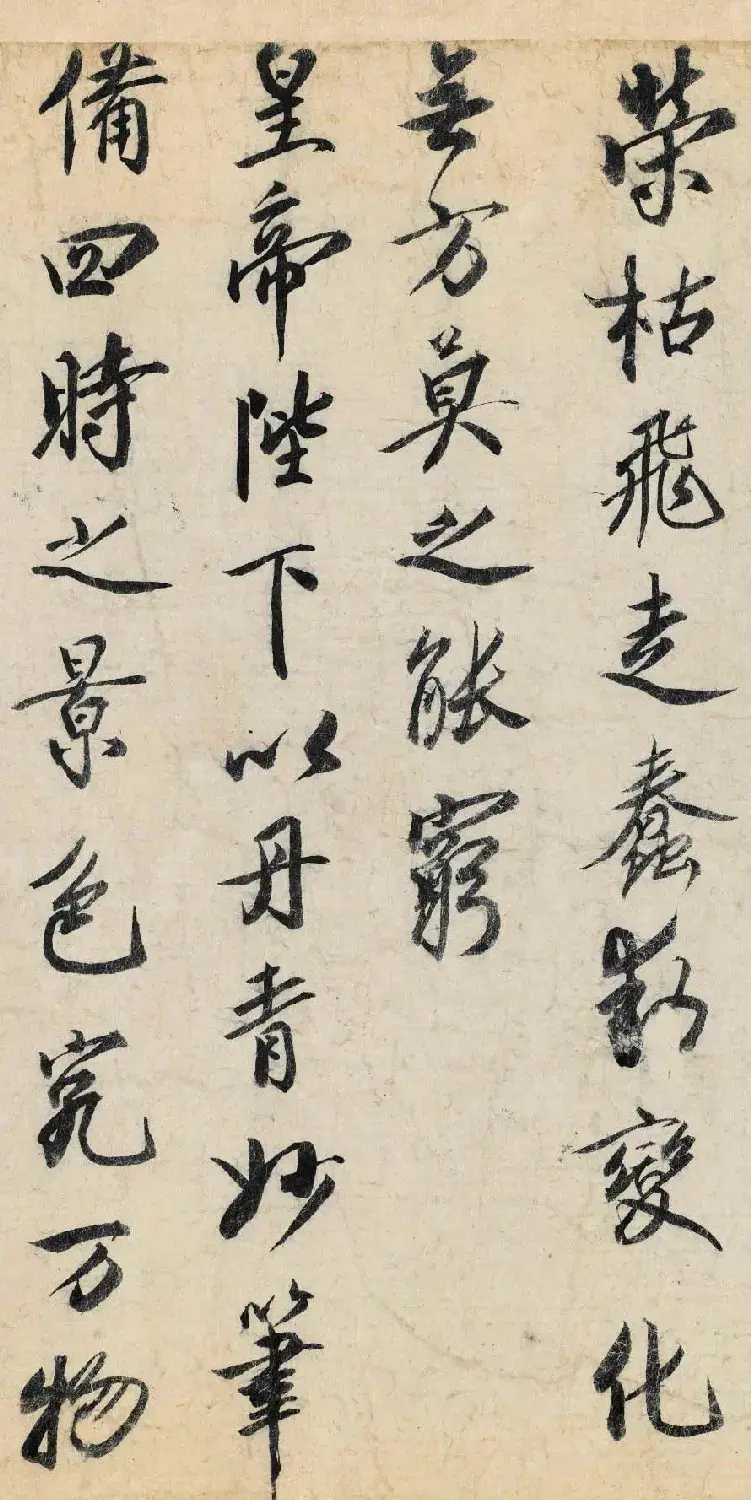 荣枯飛走蠢動變化
無方莫之能窮
皇帝陛下以丹青妙筆
備四時之景色究万物